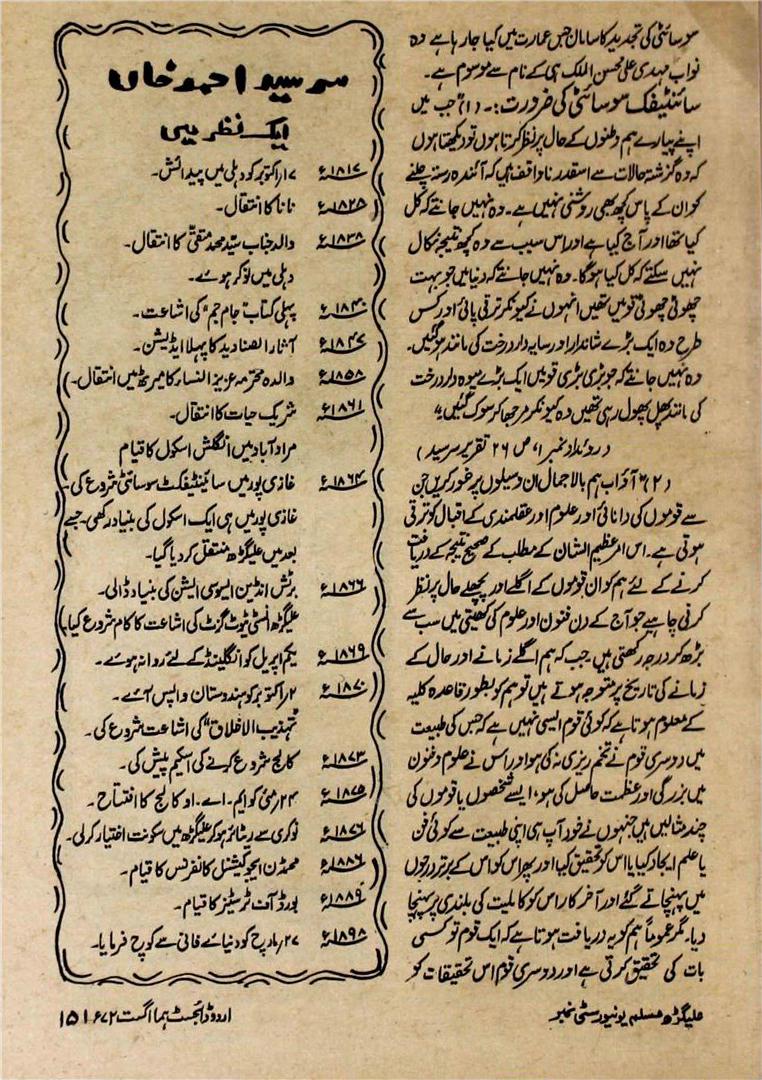 سوسائٹی کی تجدید کا سامان جس عمارت میں کیا جا رہا ہے وہ
نواب مہدی علی محسن الملک ہی کے نام سے موسوم ہے۔
سائنٹیفک سوسائٹی کی ضرورت:۔ (۱) "جب میں
اپنے پیارے ہم وطنوں کے حال پر نظر کرتا ہوں تو دیکھتا ہوں
کہ وہ گزشتہ حالات سے اسقدر ناواقف ہیں کہ آئندہ رستہ چلنے
کو ان کے پاس کچھ بھی روشنی نہیں ہے۔ وہ نہیں جانتے کہ کل
کیا تھا اور آج کیا ہے اور اس سبب سے وہ کچھ نتیجہ نکال
نہیں سکتے کہ کل کیا ہوگا۔ وہ نہیں جانتے کہ دنیا میں جو بہت
چھوٹی چھوٹی قومیں تھیں انہوں نے کیونکر ترقی پائی اور کس
طرح وہ ایک بڑے شاندار اور سایہ دار درخت کی مانند ہوگئیں۔
وہ نہیں جانتے کہ جو بڑی بڑی قومیں ایک بڑے میوہ دار درخت
کی مانند پھل پھول رہی تھیں وہ کیونکر مرجھا کر سوکھ گئیں"
(روئداد نمبر ۱، ص ۲۶ تقریر سرسید)
(۲) "آؤ اب ہم بالاجمال ان وسیلوں پر غور کریں جن
سے قوموں کی دانائی اور علوم اور عقلمندی کے اقبال کو ترقی
ہوتی ہے۔ اس امر عظیم الشان کے مطلب کے صحیح نتیجہ کے دریافت
کرنے کے لئے ہم کو ان قوموں کے اگلے اور پچھلے حال پر نظر
کرنی چاہیے جو آج کے دن فنون اور علوم کی کھیتی میں سب سے
بڑھ کر درجہ رکھتی ہیں۔ جب کہ ہم اگلے زمانے اور حال کے
زمانے کی تاریخ پر متوجہ ہوتے ہیں تو ہم کو بطور قاعدہ کلیہ
کے معلوم ہوتا ہے کہ کوئی قوم ایسی نہیں ہے کہ جس کی طبیعت
میں دوسری قوم نے تخم ریزی نہ کی ہو اور اس نے علوم و فنون
میں بزرگی اور عظمت حاصل کی ہو، ایسے شخصوں یا قوموں کی
چند مثالیں ہیں جنہوں نے خود آپ ہی اپنی طبیعت سے کوئی فن
یا علم ایجاد کیا یا اس کو تحقیق کیا اور پھر اس کو اس کے برتر درجوں
میں پہنچاتے گئے اور آخر کار اس کو کاملیت کی بلندی پر پہنچا
دیا۔ مگر عموماً ہم کو یہ دریافت ہوتا ہے کہ ایک قوم تو کسی
بات کی تحقیق کرتی ہے اور دوسری قوم اس تحقیقات کو
سر سید احمد خاں
ایک نظر میں
۱۸۱۷ء ۱۷ اکتوبر کو دہلی میں پیدائش۔
۱۸۲۸ء نانا کا انتقال۔
۱۸۳۸ء والد جناب سید محمد متقی کا انتقال۔
دہلی میں نوکر ہوے۔
۱۸۴۰ء پہلی کتاب "جام جم" کی اشاعت۔
۱۸۴۷ء آثار الصنادید کا پہلا ایڈیشن۔
۱۸۵۸ء والدہ محترمہ عزیز النساء کا میرٹھ میں انتقال۔
۱۸۶۱ء شریک حیات کا انتقال۔
مراد آباد میں انگلش اسکول کا قیام
۱۸۶۴ء غازی پور میں سائینٹیفک سوسائٹی شروع کی۔
غازی پور میں ہی ایک اسکول کی بنیاد رکھی۔ جسے
بعد میں علیگڑھ منتقل کر دیا گیا۔
۱۸۶۶ء برٹش انڈین ایسوسی ایشن کی بنیاد ڈالی۔
علیگڑھ انسٹی ٹیوٹ گزٹ کی اشاعت کا کام شروع کیا
۱۸۶۹ء یکم اپریل کو انگلینڈ کے لئے روانہ ہوے۔
۱۸۷۰ء ۲ اکتوبر کو ہندوستان واپس آئے۔
"تہذیب الاخلاق" کی اشاعت شروع کی۔
۱۸۷۳ء کالج شروع کرنے کی اسکیم پیش کی۔
۱۸۷۵ء ۲۴ مئی کو ایم۔ اے۔ او کالج کا افتتاح۔
۱۸۷۶ء نوکری سے ریٹائر ہو کر علیگڑھ میں سکونت اختیار کر لی۔
۱۸۸۶ء محمڈن ایجوکیشنل کانفرنس کا قیام۔
۱۸۸۹ء بورڈ آف ٹرسٹیز کا قیام۔
۱۸۹۸ء ۲۷ مارچ کو دنیائے فانی سے کوچ فرمایا۔
علیگڑھ مسلم یونیورسٹی نمبر
اردو ڈائجسٹ ہما اگست ۶۷۲ ۱۵۱